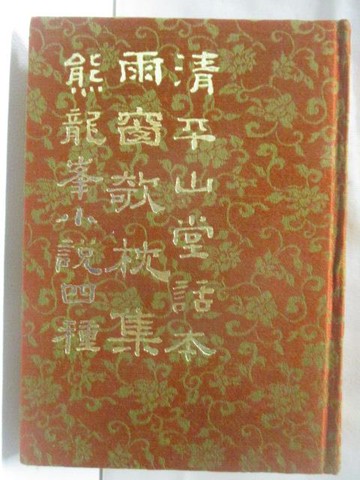 清平山堂話本
雨窗欹枕集
熊龍峯小說四種